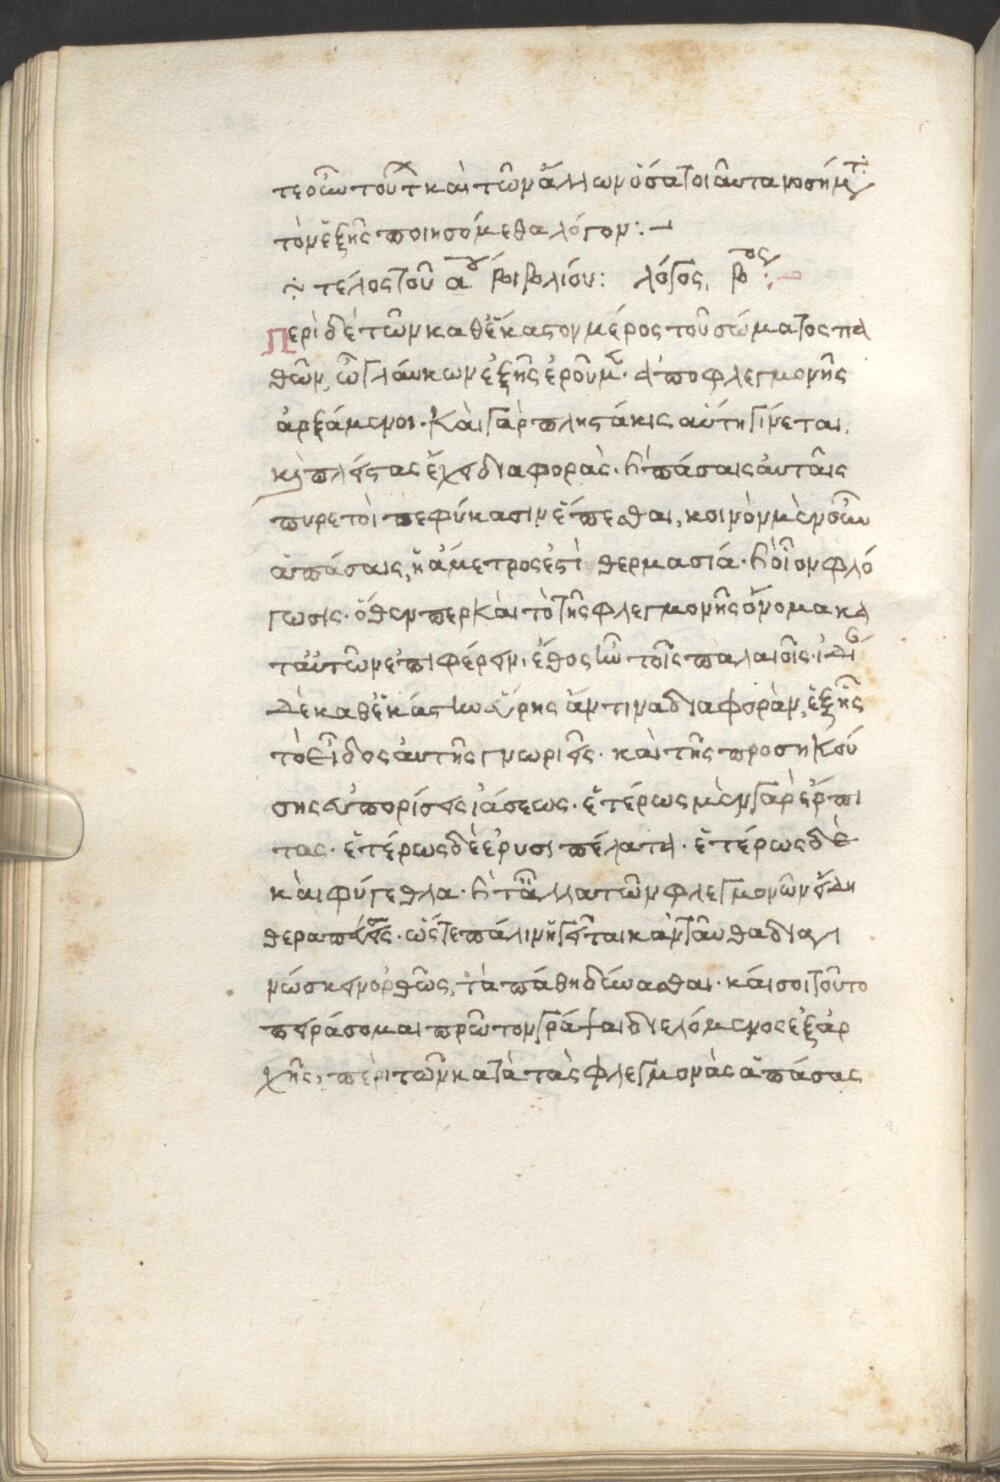 τε οὖν τούτ καὶ τῶν ἄλλων ὅσα τοιαῦτα νοσήμτ
τὸν ἑξῆς ποιησόμεθα λόγον:
τέλος τοῦ αου βιβλίου: λόγος βος:
Περὶ δὲ τῶν καθ ἕκαστον μέρος τοῦ σώματος πα
θῶν, ὦ γλάυκων ἐξῆς ἐροῦμ. ἀπο φλεγμονῆς
ἀρξάμενοι. καὶ γὰρ πλειστάκις αὕτη γίνεται,
καὶ πλείστας ἔχει διαφορὰς. καὶ πάσαις ἀυταῖς
πυρετοὶ πεφύκασιν ἕπεσθαι, κοινὸν μὲν οὖν
ἁπάσαις, ἡ ἄμετρος ἐστὶ θερμασία. καὶ οἷον φλό
γωσις. ὅθεν περ καὶ τὸ τῆς φλεγμονῆς ὄνομα κα
τ αὐτῶν ἐπιφέρειν. ἔθος ἦν τοῖς παλαιοῖς.
δὲ καθ ἑκάστην εὕρης ἄν τινα διαφορὰν, ἑξῆς
τὸ εἶδος ἀυτῆς γνωριεῖς. καὶ τῆς προσηκού
σης εὐπορίσεις ἰάσεως. ἑτέρως μὲν γὰρ ἕρπη
τας. ἑτέρως δὲ ἐρυσιπέλατα. ἑτέρως δὲ
καὶ φύγεθλα. καὶ τἆλλα τῶν φλεγμονῶν εἴδη
θεραπεύσεις. ὥστε πάλιν ἡγεῖται κἀνταῦθα διαγι
νώσκειν ὀρθῶς, τὰ πάθη δύνασθαι. κάι σοι τοῦτο
πειράσομαι πρῶτον γράψαι διελόμενος ἐξ ἀρ
χῆς, πὲρι τῶν κατὰ τὰς φλεγμονὰς ἁπάσας